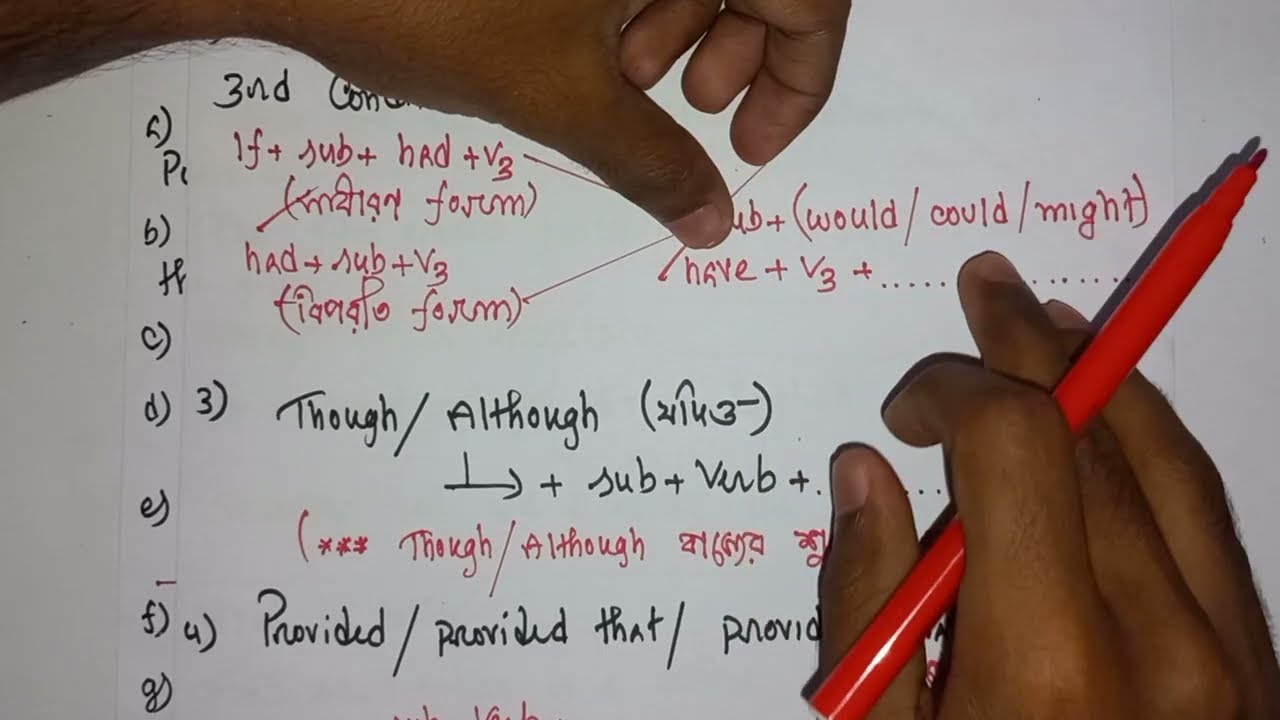 3rd
a)
If + sub + had + V3
(সাধারণ form)
b)
sub + (would / could / might)
had + sub + V3
have + V3 + ..................
(বিপরীত form)
c)
d) 3) Though / Although (যদিও-)
+ sub + Verb + ......
e)
(*** Though / Although বাক্যের
f) 4) Provided / provided that /
g)